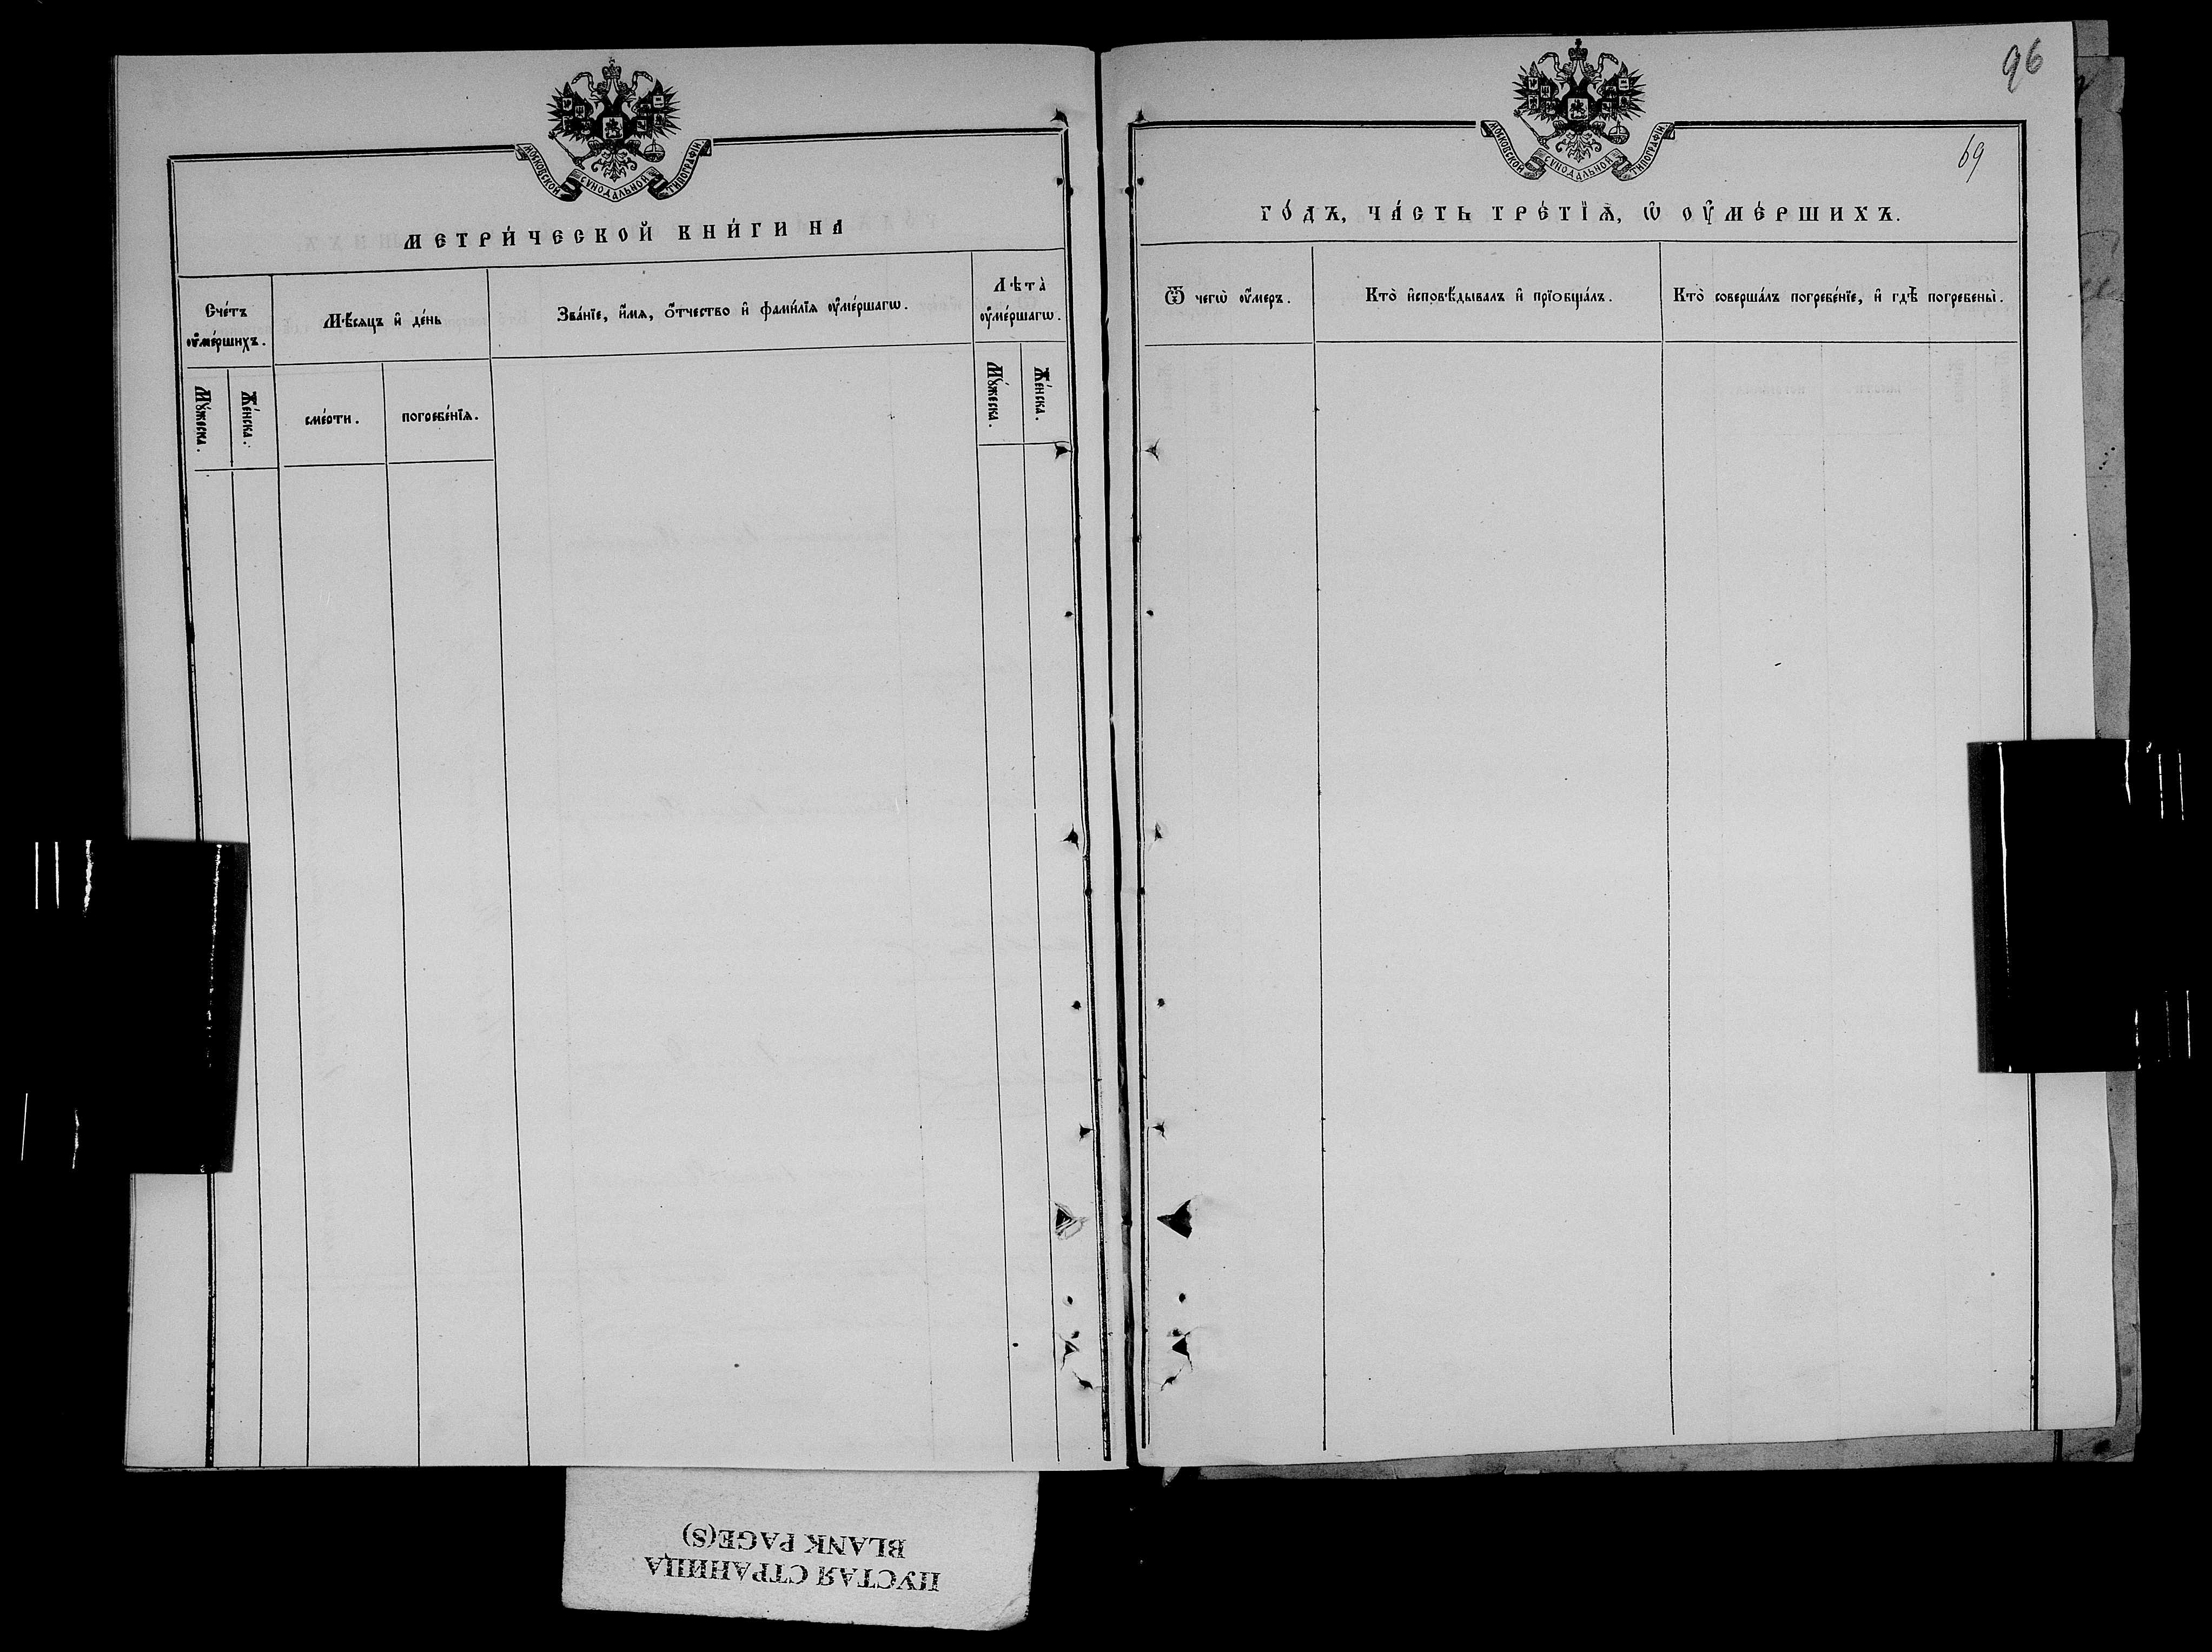 МОСКОВСКОЙ СѴНОДАЛЬНОЙ ТИПОГРАФІИ
МЕТРИ́ЧЕСКОЙ КНИ́ГИ НА
Сче́тъ ᲂу҆ме́ршихъ.
Мѣ́сяцъ и҆ де́нь
Зва́нїе, и҆́мѧ, ѻ҆́тчество и҆ фами́лїѧ ᲂу҆ме́ршагѡ.
Лѣта̀ ᲂу҆ме́ршагѡ.
Мꙋ́жеска.
Же́нска.
сме́рти.
погребе́нїѧ.
Мꙋ́жеска.
Же́нска.
96
МОСКОВСКОЙ СѴНОДАЛЬНОЙ ТИПОГРАФІИ
69
ГО́ДЪ, ЧА́СТЬ ТРЕ́ТЇѦ, Ѡ҆ ОУ҆МЕ́РШИХЪ.
Ѿ чегѡ̀ ᲂу҆́меръ.
Кто̀ и҆сповѣ́дывалъ и҆ прїѻбща́лъ.
Кто̀ соверша́лъ погребе́нїе, и҆ гдѣ̀ погребены̀.
ПУСТАЯ СТРАНИЦА
BLANK PAGE(S)